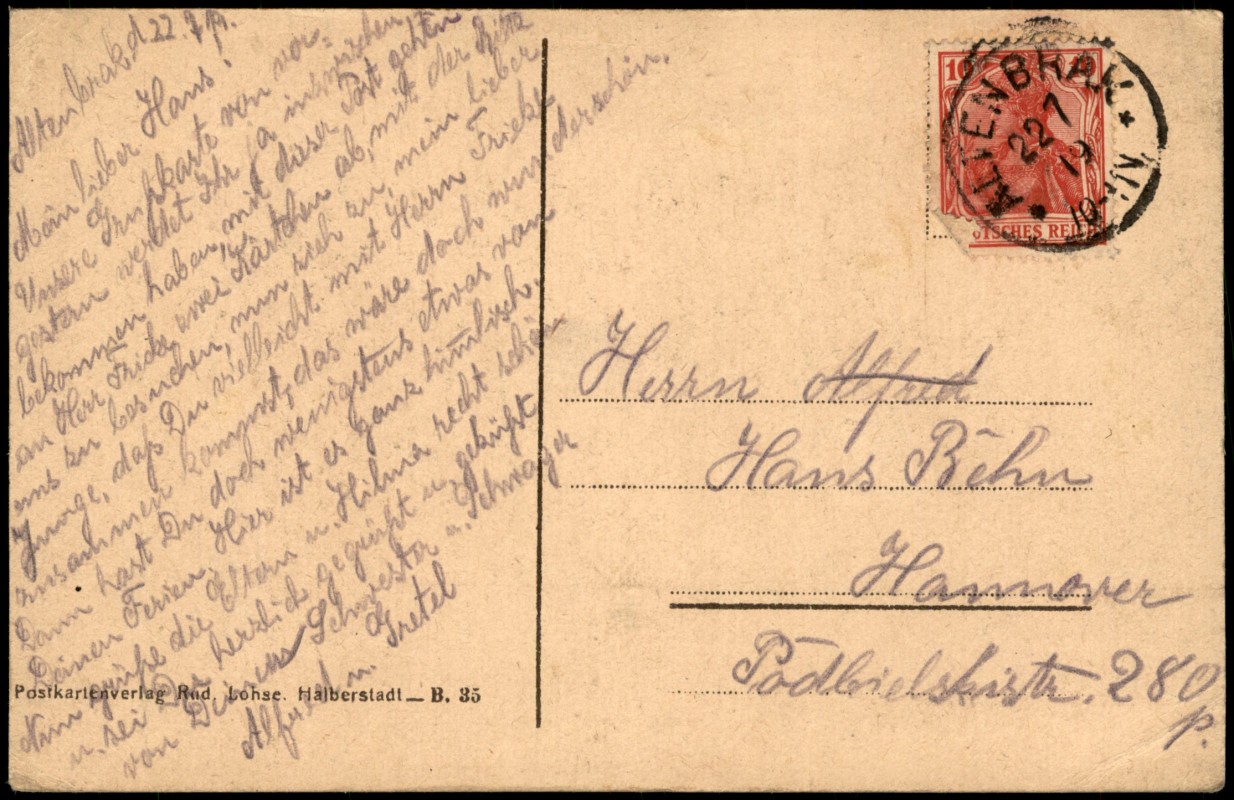 Altenbrak, d 22.7.19.
Mein lieber Hans!
Unsere Grußkarte von vor-
gestern werdet Ihr ja inzwischen
bekommen haben, mit dieser Post gehen
an Herr Fricke zwei Kärtchen ab, mit der Bitte
uns zu besuchen, nun sieh zu, mein lieber
Junge, daß Du vielleicht mit Herrn Fricke
zusammen kommst, das wäre doch wunderschön.
Dann hast Du doch wenigstens etwas von
Deinen Ferien. Hier ist es ganz himlisch.
Nun grüße die Eltern u. Hilma recht schön
u. sei Du herzlich gegrüßt u. geküßt
von Deiner Schwester u. Schwager
Alfred u. Gretel
Postkartenverlag Rud. Lohse. Halberstadt – B. 35
10 10
DEUTSCHES REICH
* ALTENBRAK *
22 7
19
10-11N
Herrn Alfred
Hans Behn
Hannover
Podbielskistr. 280
p.